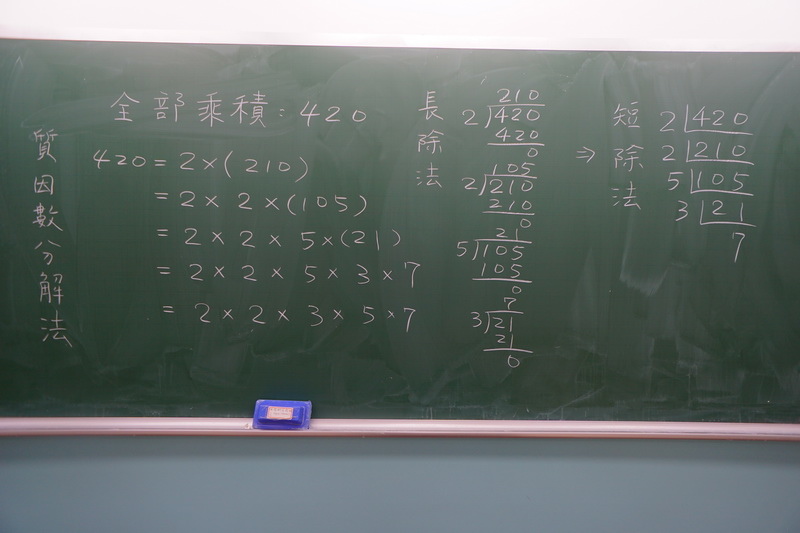 質因數分解法
全部乘積:420
420 = 2×(210)
= 2 × 2 ×(105)
= 2 × 2 × 5 ×(21)
= 2 × 2 × 5 × 3 × 7
= 2 × 2 × 3 × 5 × 7
長除法
210
2)420
420
0
105
2)210
210
0
21
5)105
105
0
7
3)21
21
0
⇒
短除法
2|420
2|210
5|105
3|21
7